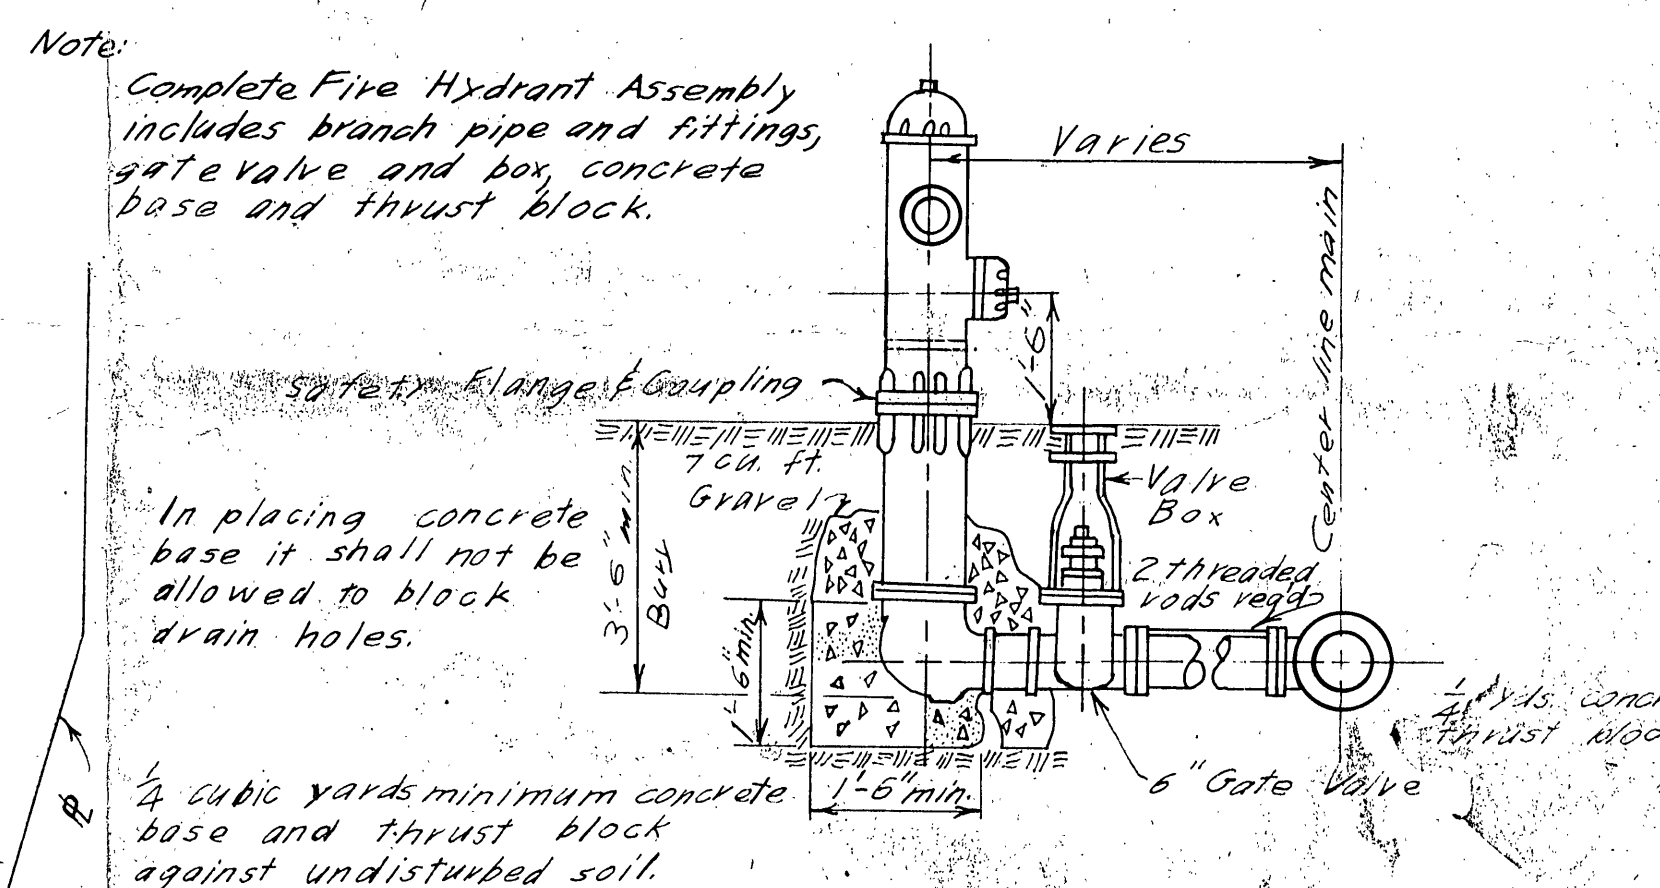 Note:
Complete Fire Hydrant Assembly
includes branch pipe and fittings,
gate valve and box, concrete
base and thrust block.
Varies
Center line main
1'-6"
Safety Flange & Coupling
7 cu. ft.
Gravel
3'-6" min.
Bury
Valve
Box
In placing concrete
base it shall not be
allowed to block
drain holes.
2 threaded
rods reqd
1'-6" min.
1/4 yds. conc
thrust bloc
6" Gate Valve
1'-6" min.
1/4 cubic yards minimum concrete
base and thrust block
against undisturbed soil.
PL